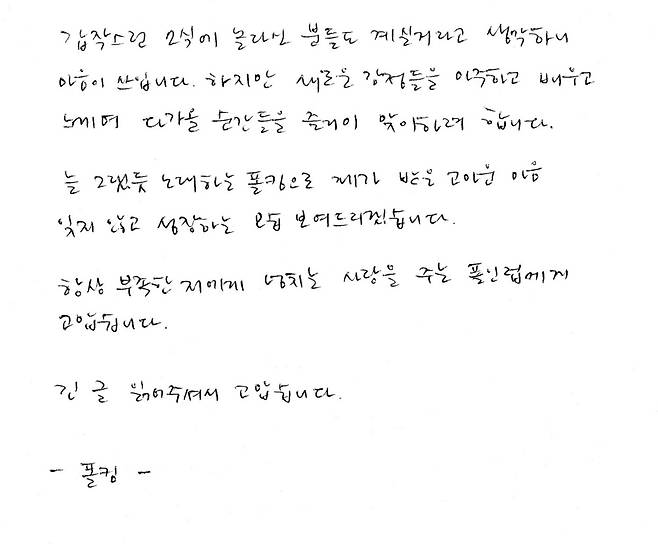 갑작스런 소식에 놀라신 분들도 계실거라고 생각하니
마음이 쓰입니다. 하지만 새로운 감정들을 마주하고 배우고
느끼며 다가올 순간들을 즐거이 맞이하려 합니다.
늘 그랬듯 노래하는 폴킴으로 제가 받은 고마운 마음
잊지 않고 성장하는 모습 보여드리겠습니다.
항상 부족한 저에게 넘치는 사랑을 주는 폴인럽에게
고맙습니다.
긴 글 읽어주셔서 고맙습니다.
- 폴킴 -